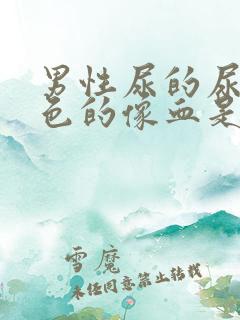 男性尿的尿
色的像血是
雪魔
未经同意禁止转载